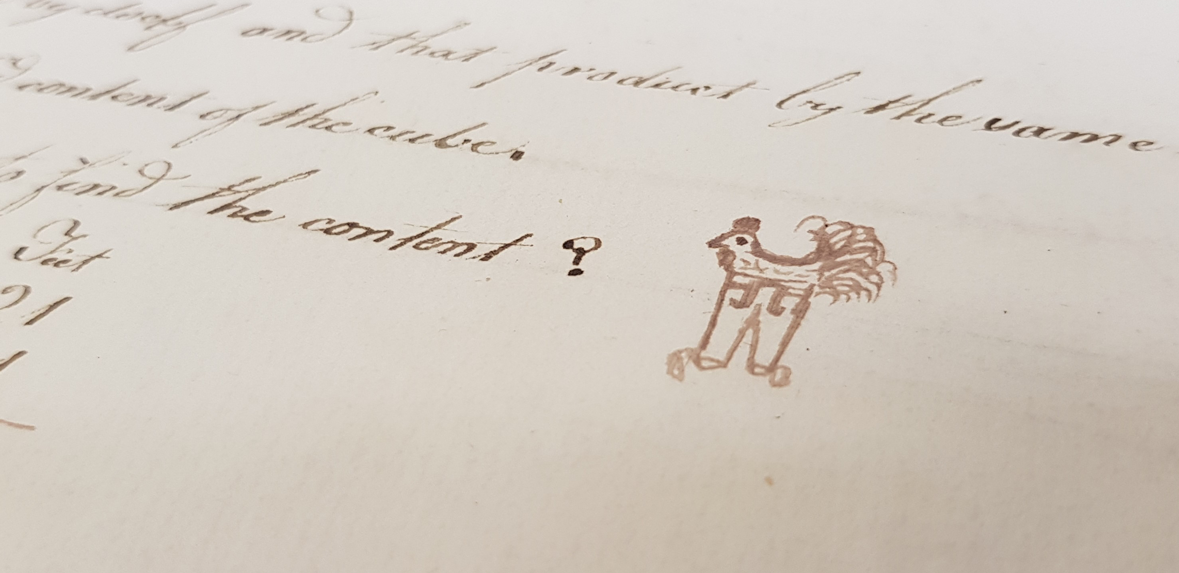 and that product by the same
content of the cube.
find the content ?
Feet
21